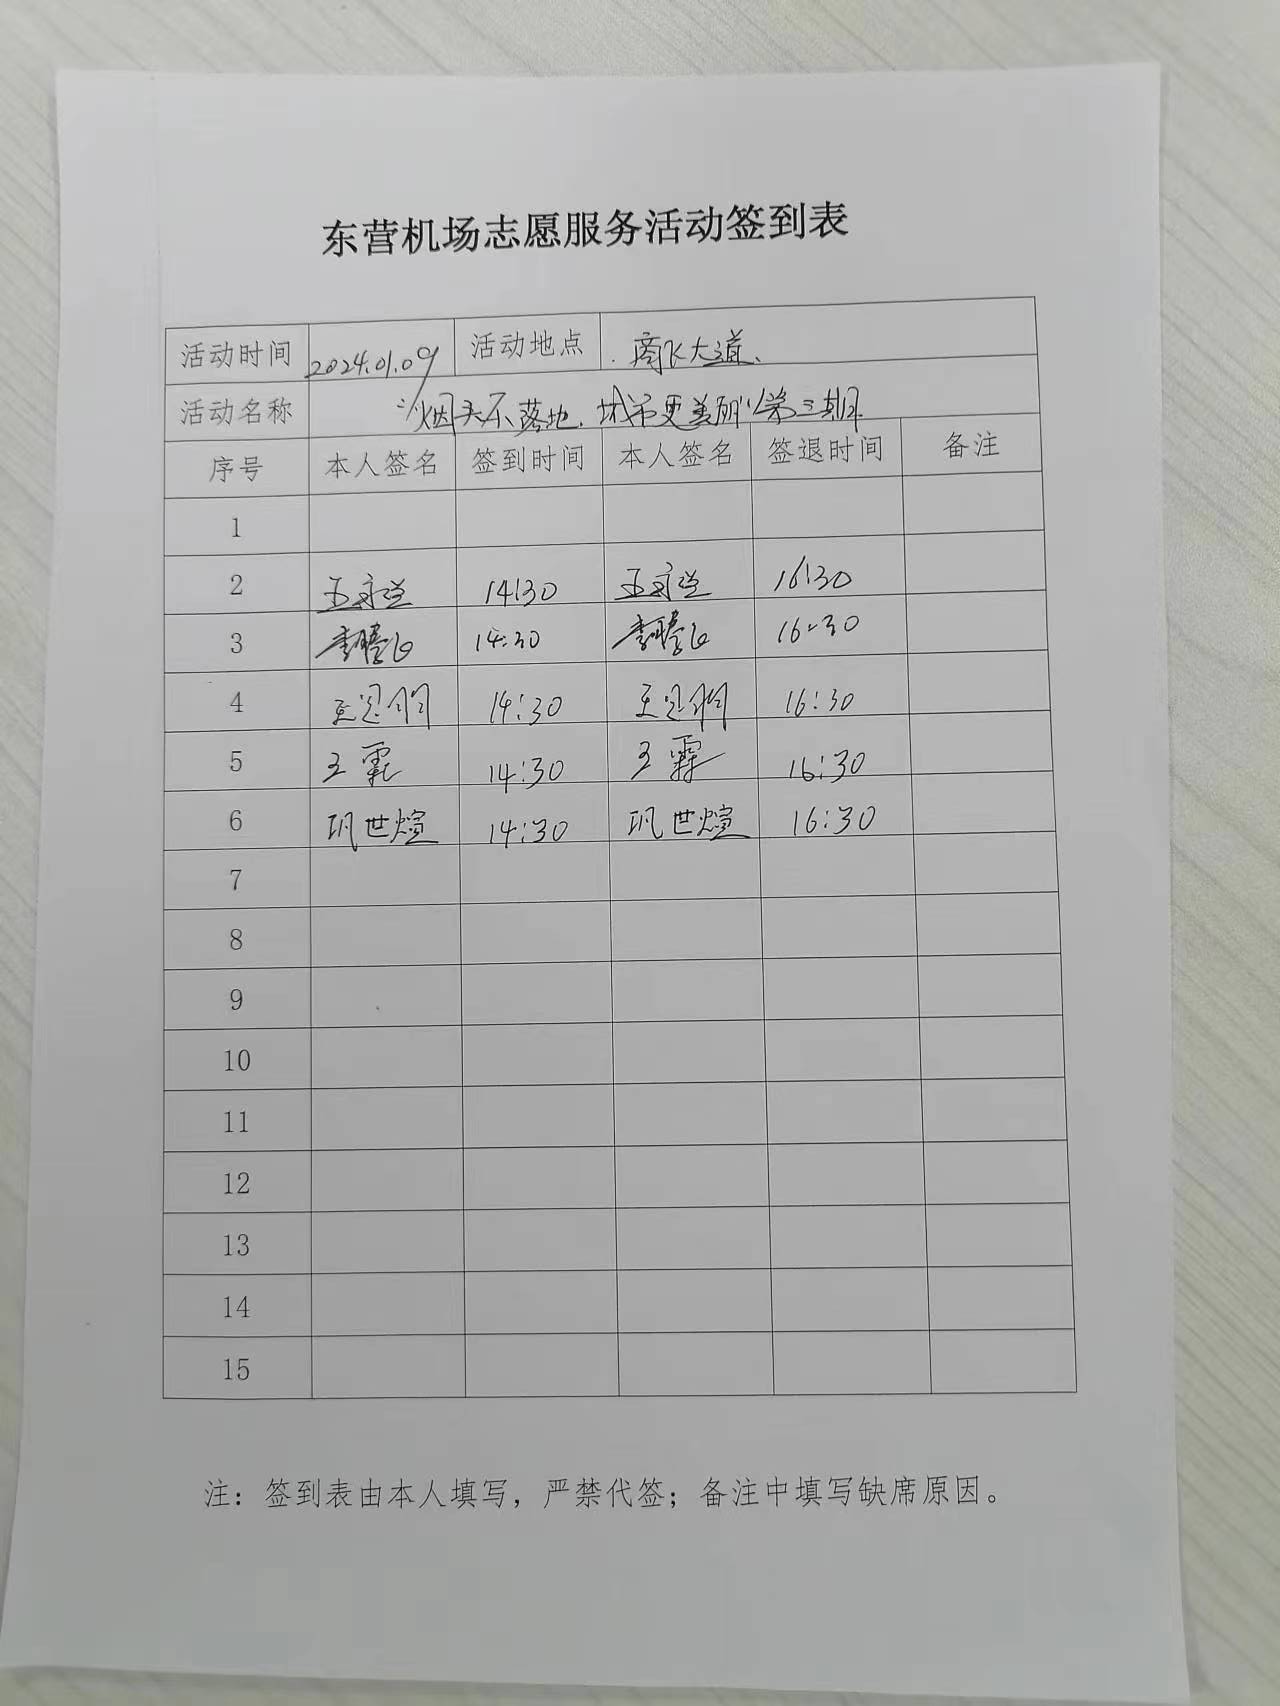 东营机场志愿服务活动签到表
活动时间 2024.01.09 活动地点 商飞大道
活动名称 "烟头不落地,城市更美丽"第三期
序号 本人签名 签到时间 本人签名 签退时间 备注
1
2 14:30 16:30
3 李腾飞 14:30 李腾飞 16:30
4 14:30 16:30
5 王霖 14:30 王霖 16:30
6 巩世煊 14:30 巩世煊 16:30
7
8
9
10
11
12
13
14
15
注：签到表由本人填写，严禁代签；备注中填写缺席原因。